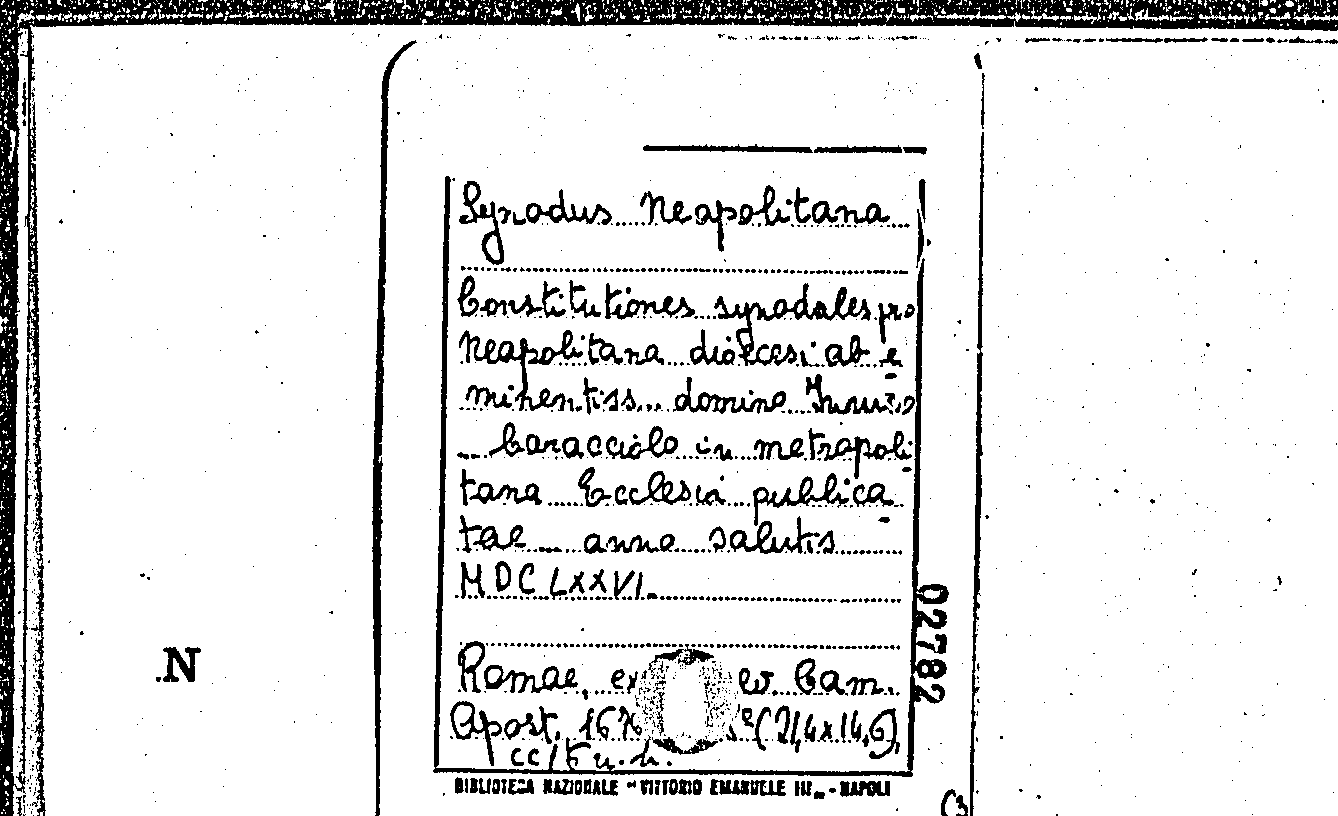 Synodus Neapolitana
Constitutiones synodales pro
Neapolitana dioecesi ab e
minentiss. domino
Caracciolo in metropoli
tana Ecclesia publica
tae anno salutis
MDCLXXVI.
Romae, ex Cam.
Apost. (21,4x14,6),
02782
.N
BIBLIOTECA NAZIONALE "VITTORIO EMANUELE III„ - NAPOLI